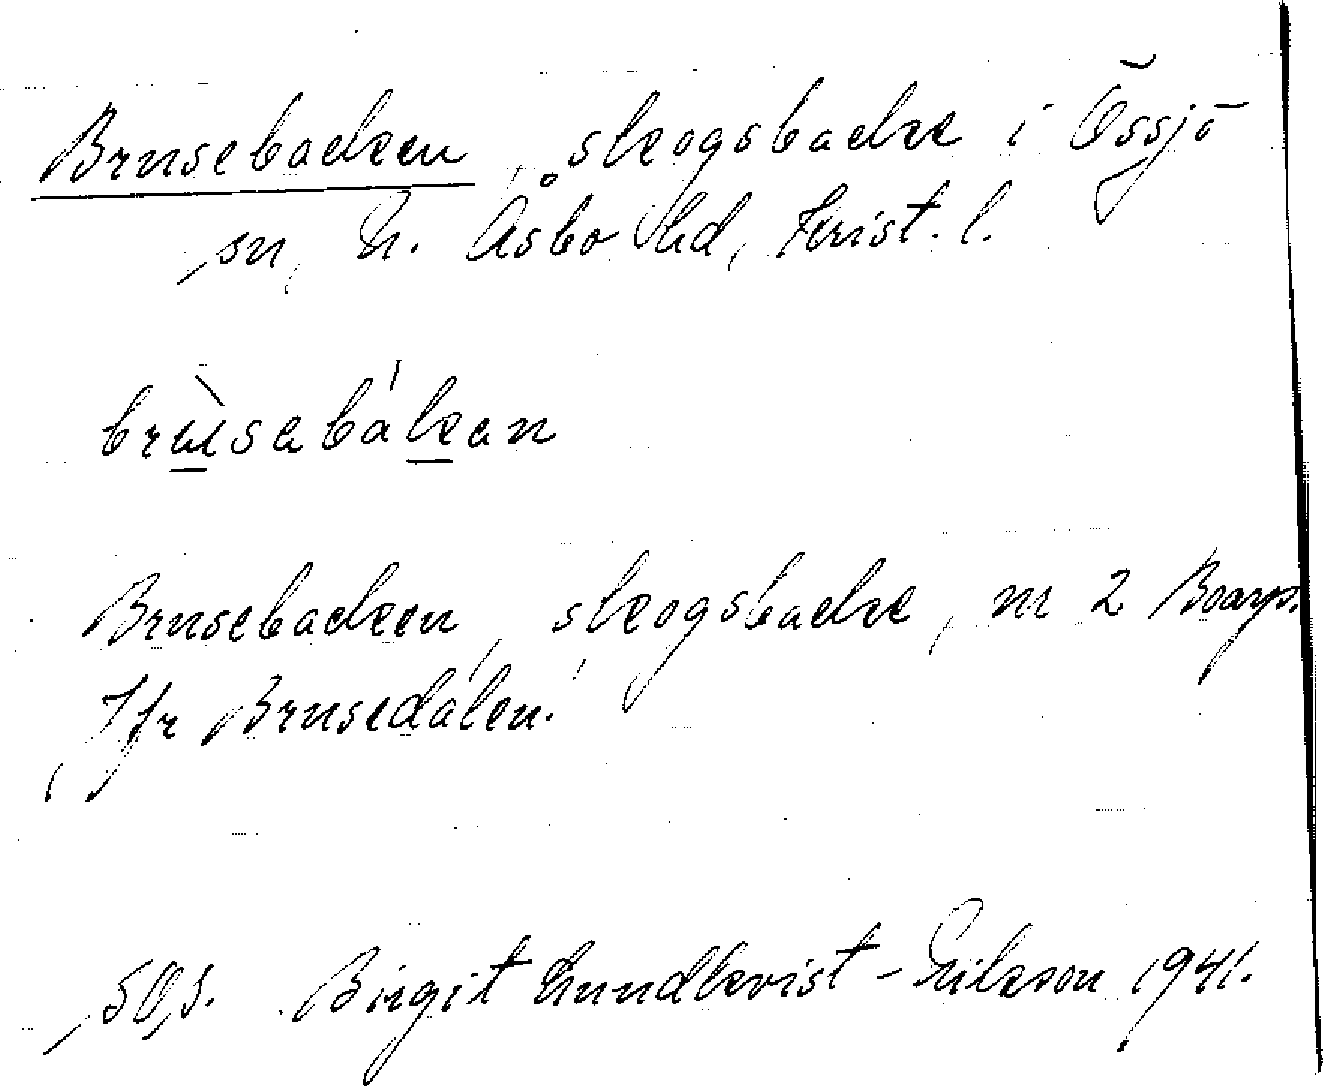 Brusebacken, skogsbacke i Össjö
sn, N. Åsbo hd, Krist. l.
brùsabákan
Brusebacken, skogsbacke, nr 2 Boarp.
Jfr Brusedalen!
Birgit Lundkvist-Erikson 1941.